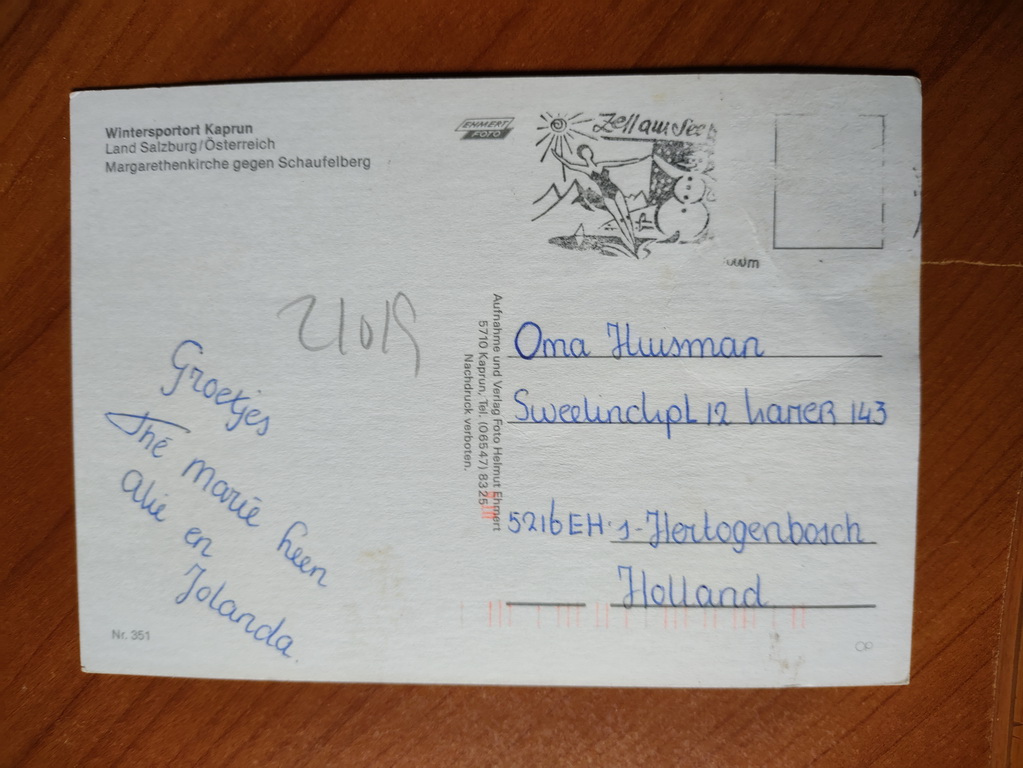 Wintersportort Kaprun
Land Salzburg/Österreich
Margarethenkirche gegen Schaufelberg
EHMERT
FOTO
Zell am See
Aufnahme und Verlag Foto Helmut Ehmert
5710 Kaprun, Tel. (06547) 8325
Nachdruck verboten.
Groetjes
Thé Marie heen
Alie en
Jolanda.
Oma Huisman
Sweelinckpl 12 kamer 143
5216 EH 's-Hertogenbosch
Holland
Nr. 351